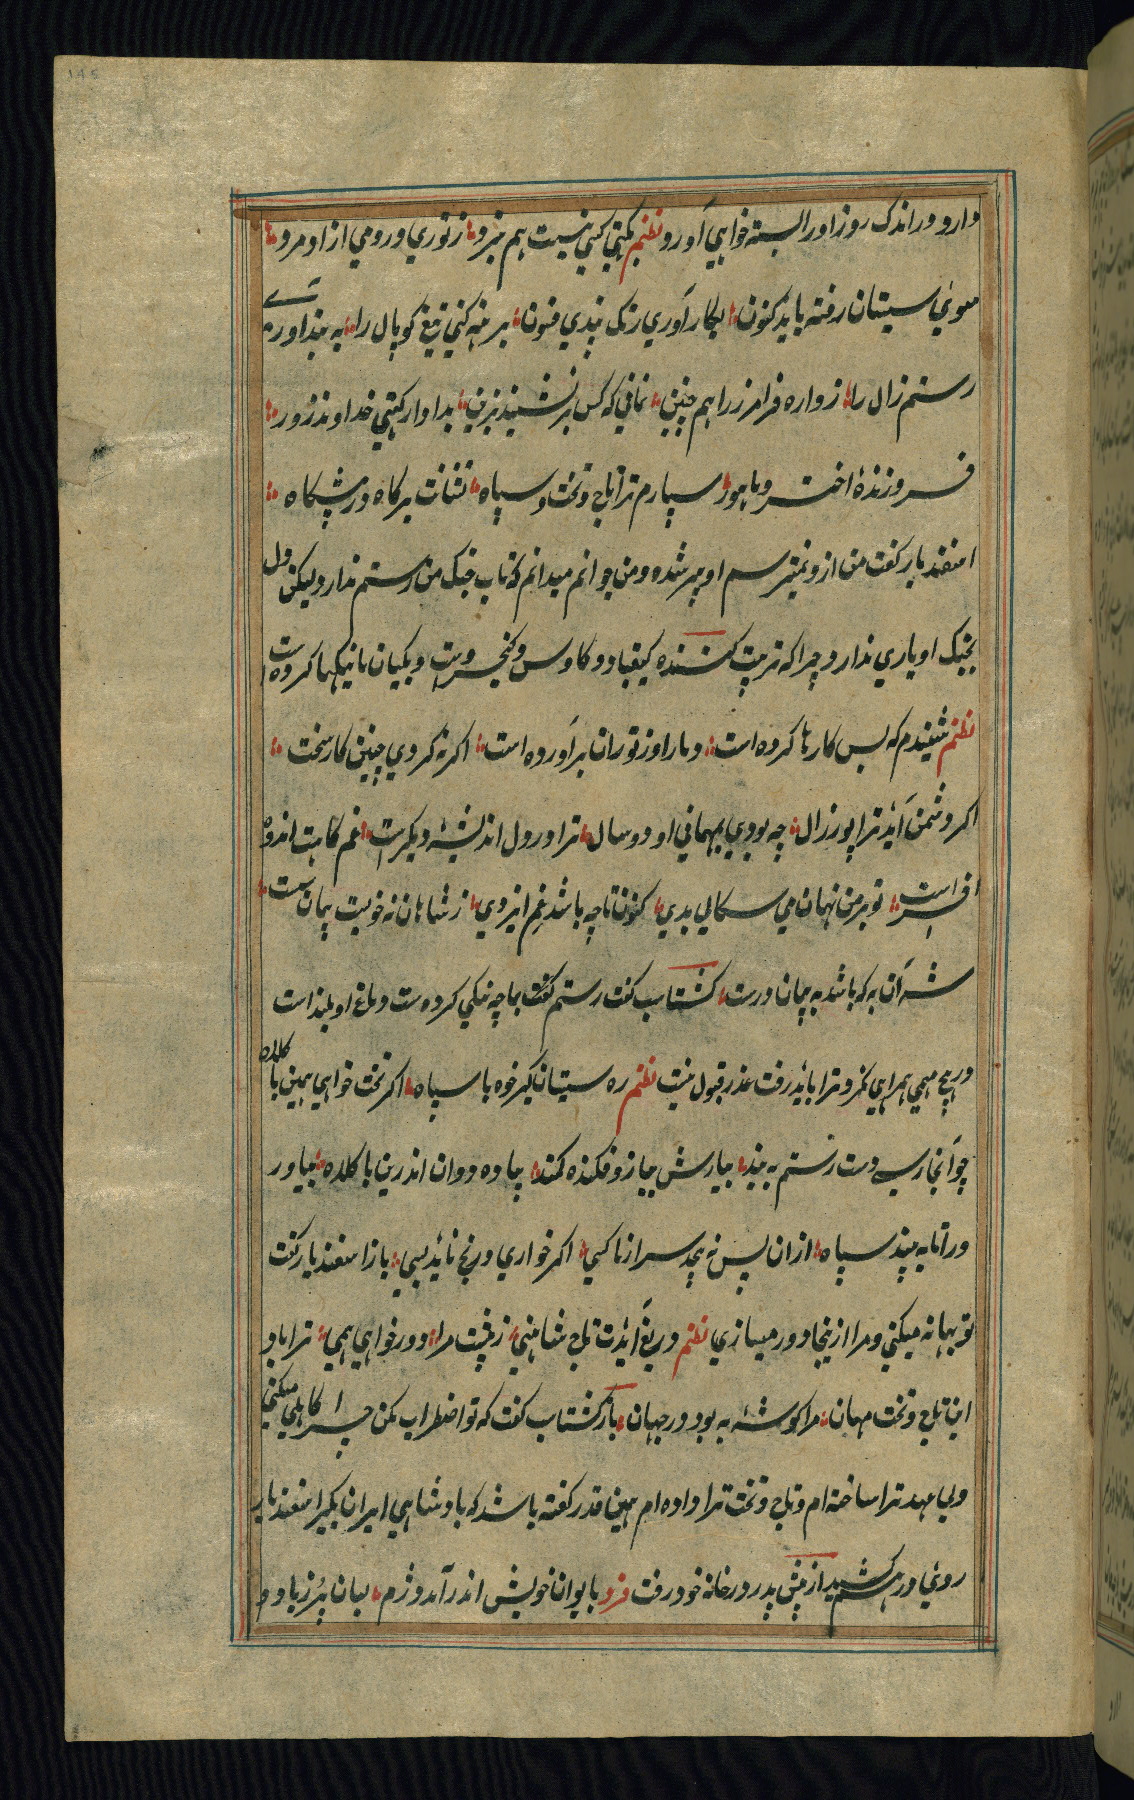 دارد در اندک روز او را بسته خواهی آورد نظم بگیتی کسی نیست هم نبرد ز توری و رومی از او مرد
سوی سیستان رفته باید کنون بکار آوری رنگ بندی فسون برهنه کنی تیغ گوپال را به بند آوری
رستم زال را زواره فرامرز را هم چنین نمانی که کس بر نشیند بزین بدادار گیتی خداوند زور
فروزندهٔ اختر و ماه و هور سپارم ترا تاج و تخت و سپاه نشانت برگاه در پیشگاه
اسفندیار گفت من ازو نمیترسم او پیر شده و من جوانم میدانم که تاب جنگ من رستم ندارد لیکن دل
بجنگ او یاری ندارد چرا که تربیت کننده کیقباد و کاوس و کیخسروست و بکیان ما نیکیها کرده است
نظم شنیدم که بس کارها کرده است دمار او ز توران برآورده است اگر نه کردی چنین کار سخت
اگر دشمن آید ترا پور زال چه بودی بمهمانی او دو سال ترا در دل اندیشهٔ دیگر است غم کاهت اندوه
افسر است تو بر من نهان می سگالی بدی کنون تا چه باشد غم ایزدی ز شاهان نه خوبست پیمان شکست
شه آن به که باشد به پیمان درست گشتاسب گفت رستم گفت با چه نیکی کرده ست دماغ او بلند است
و هیچ همراهی نکرد ترا باید رفت عذر قبول نیست نظم ره سیستان گیر خود با سپاه اگر تخت خواهی همین با کلاه
چو آنجا رسی دست رستم به بند بیارش ببازو فکنده کمند پیاده دوان اندرین با کلاه بیاور
ورا تا به بیند سپاه از ان پس نه پیچد سر از ما کسی اگر خواری و رنج ناید بسی باز اسفندیار گفت
تو بهانه میکنی و مرا از ینجا دور میسازی نظم دریغ آیدت تاج شاهی ز پیشت مرا دور خواهی همی ترا باد
این تاج و تخت مهان مرا گوشهٔ به بود در جهان باز گشتاسب گفت که تو اضطراب مکن چرا کاهلی میکنی
ولی عهد ترا ساخته ام و تاج و تخت ترا داده ام همین قدر گفته باشد که پادشاهی ایران بگیر اسفندیار
روی در هم کشید از پیش پدر در خانه خود رفت فرد بایوان خویش اندر آمد دژم لبان پر ز باد و